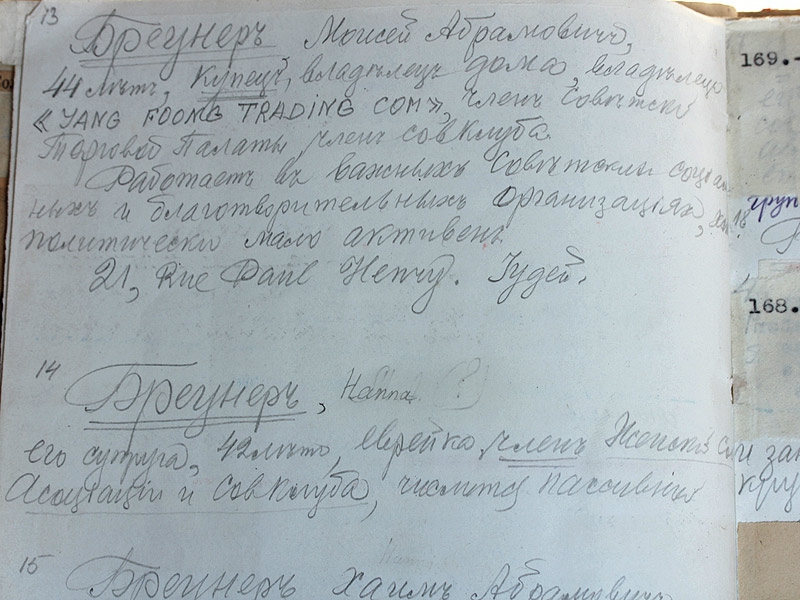 13
Бреунеръ Моисей Абрамовичъ,
44 лѣтъ, купецъ, владѣлецъ дома, владѣлецъ
«YANG FOONG TRADING COM», членъ Совѣтской
Торговой Палаты, членъ совклуба.
Работаетъ въ важныхъ Совѣтскихъ соціаль-
ныхъ и благотворительныхъ организаціяхъ,
политически мало активенъ.
21, Rue Paul Henry. Іудей.
14
Бреунеръ, Наппа (?)
его супруга, 42 лѣтъ, еврейка, членъ Женской
Асоціаціи и Совклуба, числится пассивной
15
Бреунеръ Хаимъ Абрамовичъ
169.-
груп
168.